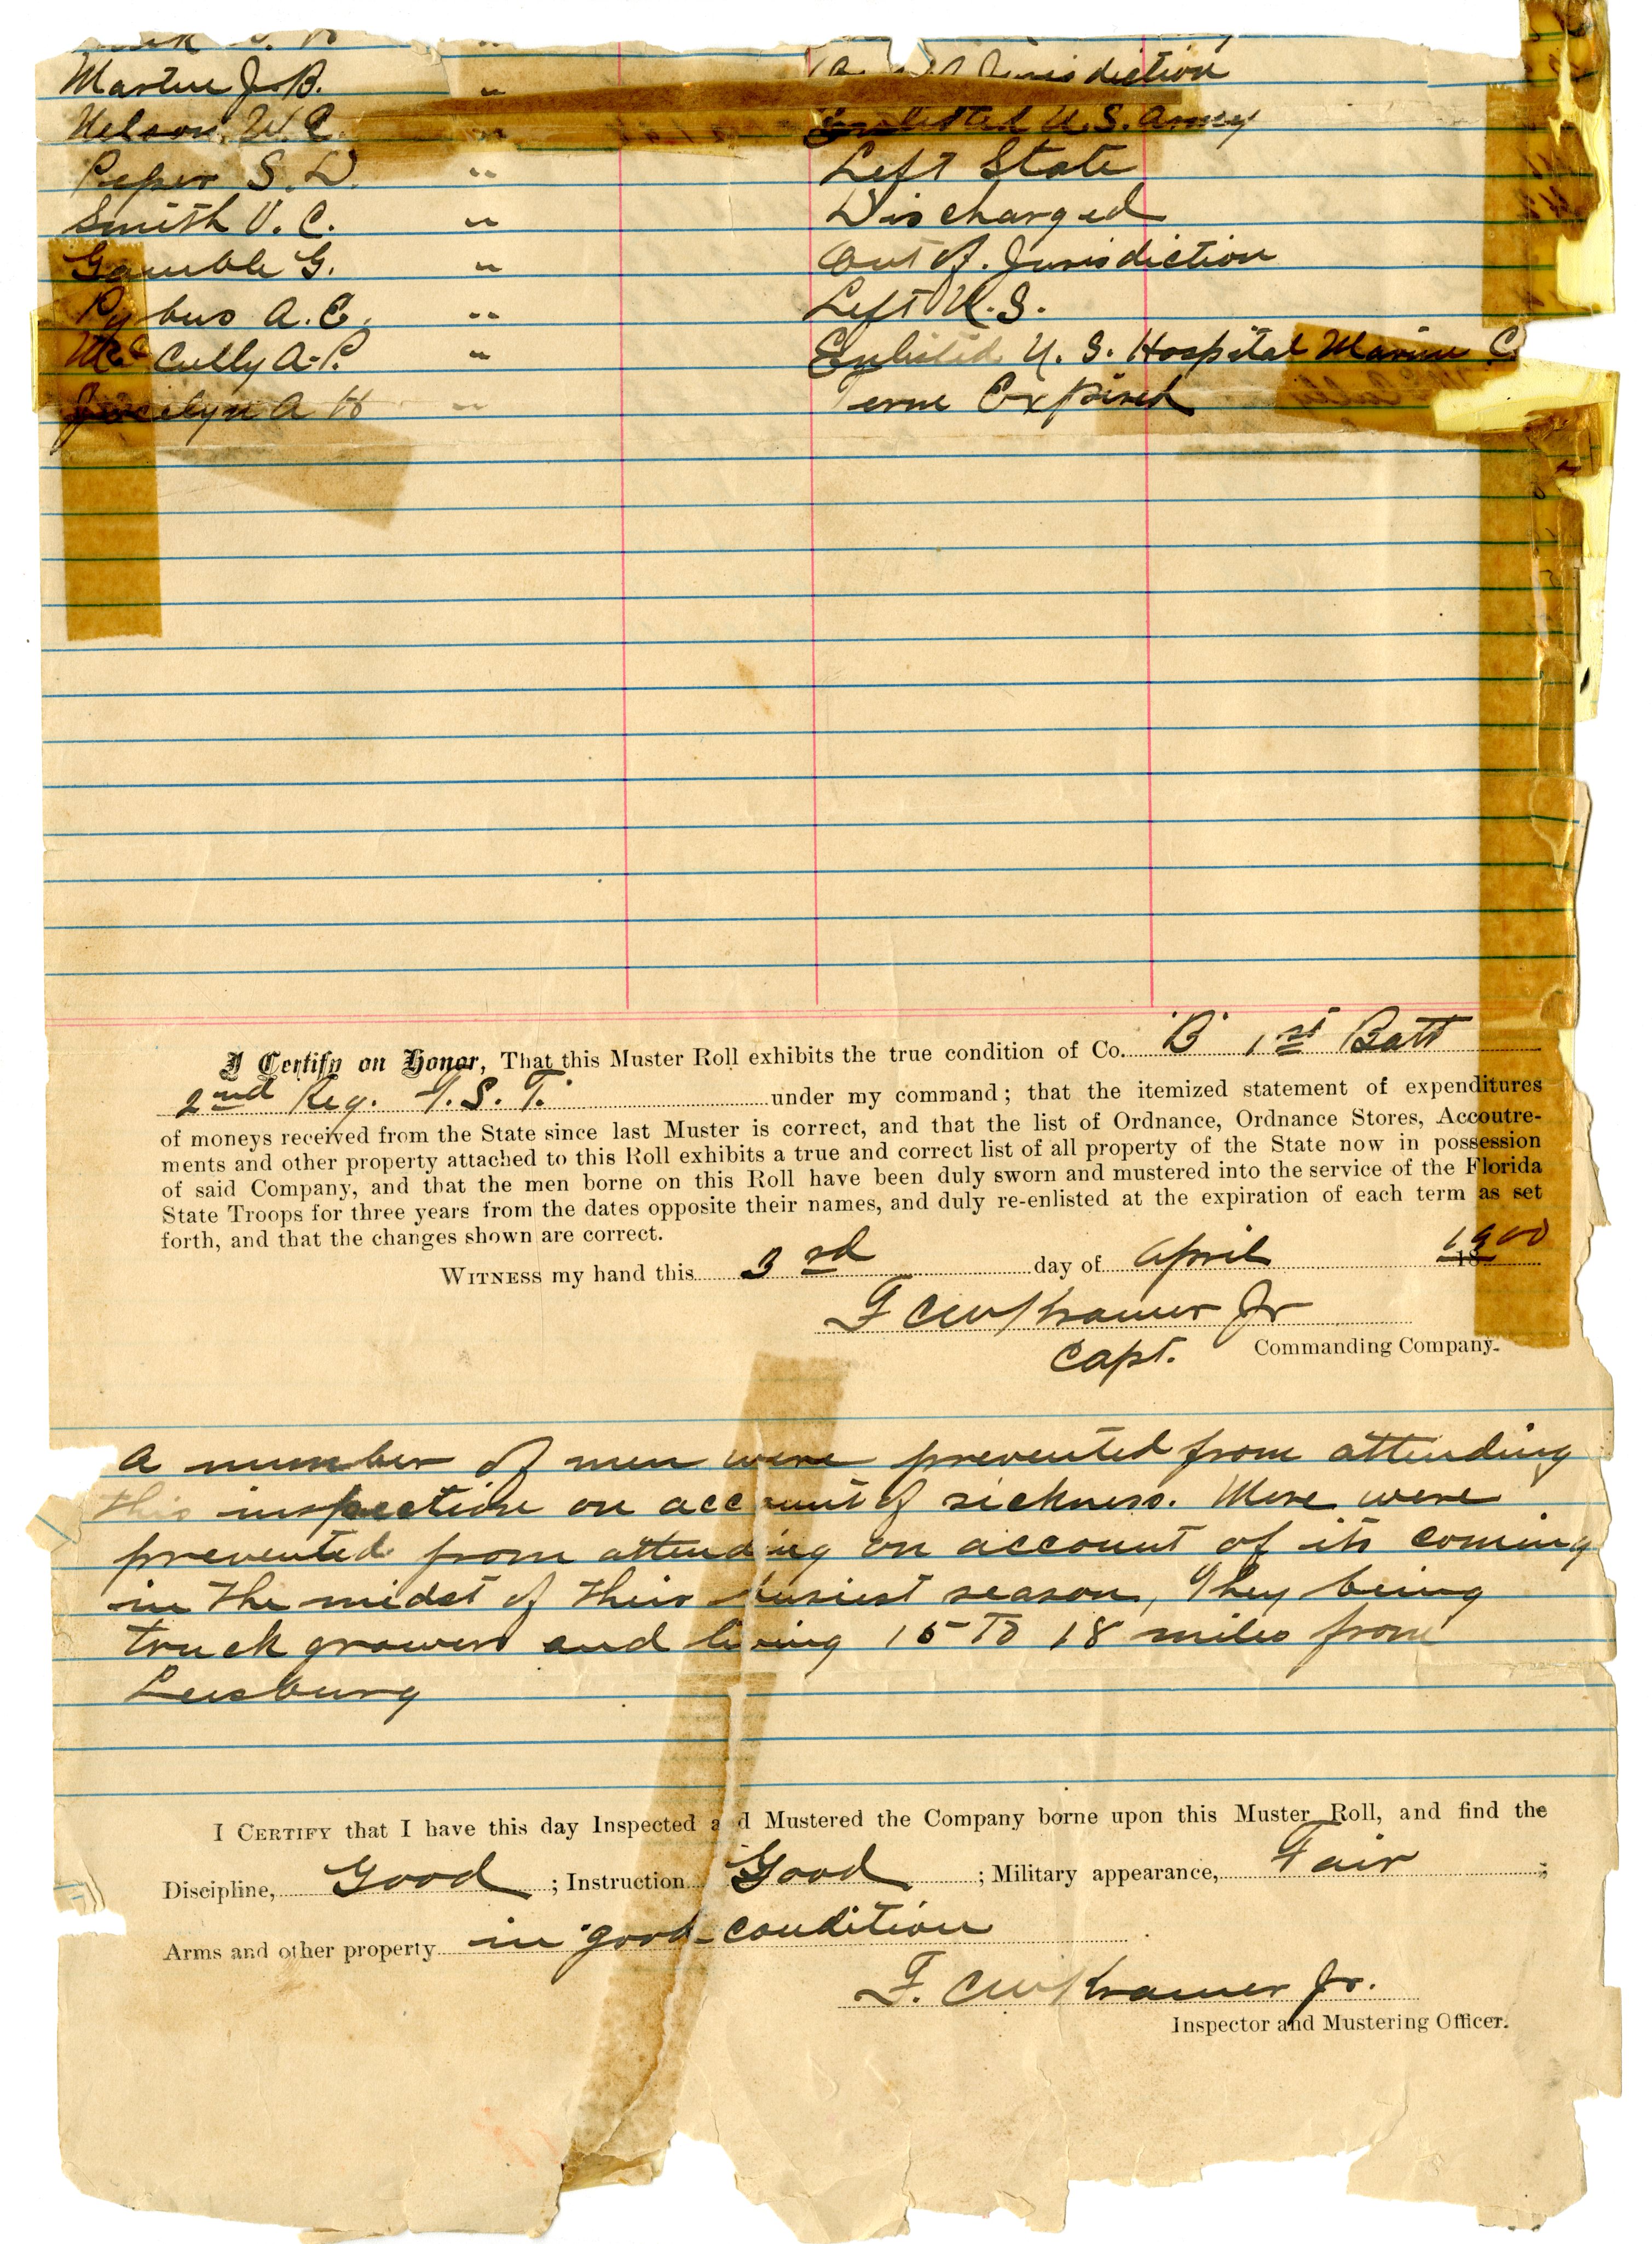 Martin J. B. " Jurisdiction
Nelson, W. C. " Enlisted U.S. Army
Peper S. D. " Left State
Smith V. C. " Discharged
Gamble G. " Out of Jurisdiction
Pybus A. E. " Left U.S.
McCully A. P. " Enlisted U. S. Hospital Marine C
A H " Term Expired
I Certify on Honor, That this Muster Roll exhibits the true condition of Co. "B" 1st Batt
2nd Reg. F. S. T. under my command; that the itemized statement of expenditures
of moneys received from the State since last Muster is correct, and that the list of Ordnance, Ordnance Stores, Accoutre-
ments and other property attached to this Roll exhibits a true and correct list of all property of the State now in possession
of said Company, and that the men borne on this Roll have been duly sworn and mustered into the service of the Florida
State Troops for three years from the dates opposite their names, and duly re-enlisted at the expiration of each term as set
forth, and that the changes shown are correct.
WITNESS my hand this 3rd day of April 1900
F C W Kramer Jr
Capt. Commanding Company.
A number of men were prevented from attending
this inspection on account of sickness. More were
prevented from attending on account of its coming
in the midst of their busiest season, They being
truck growers and living 15 to 18 miles from
Leesburg
I CERTIFY that I have this day Inspected and Mustered the Company borne upon this Muster Roll, and find the
Discipline, Good ; Instruction Good ; Military appearance, Fair ;
Arms and other property in good condition
F. C W Kramer Jr.
Inspector and Mustering Officer.